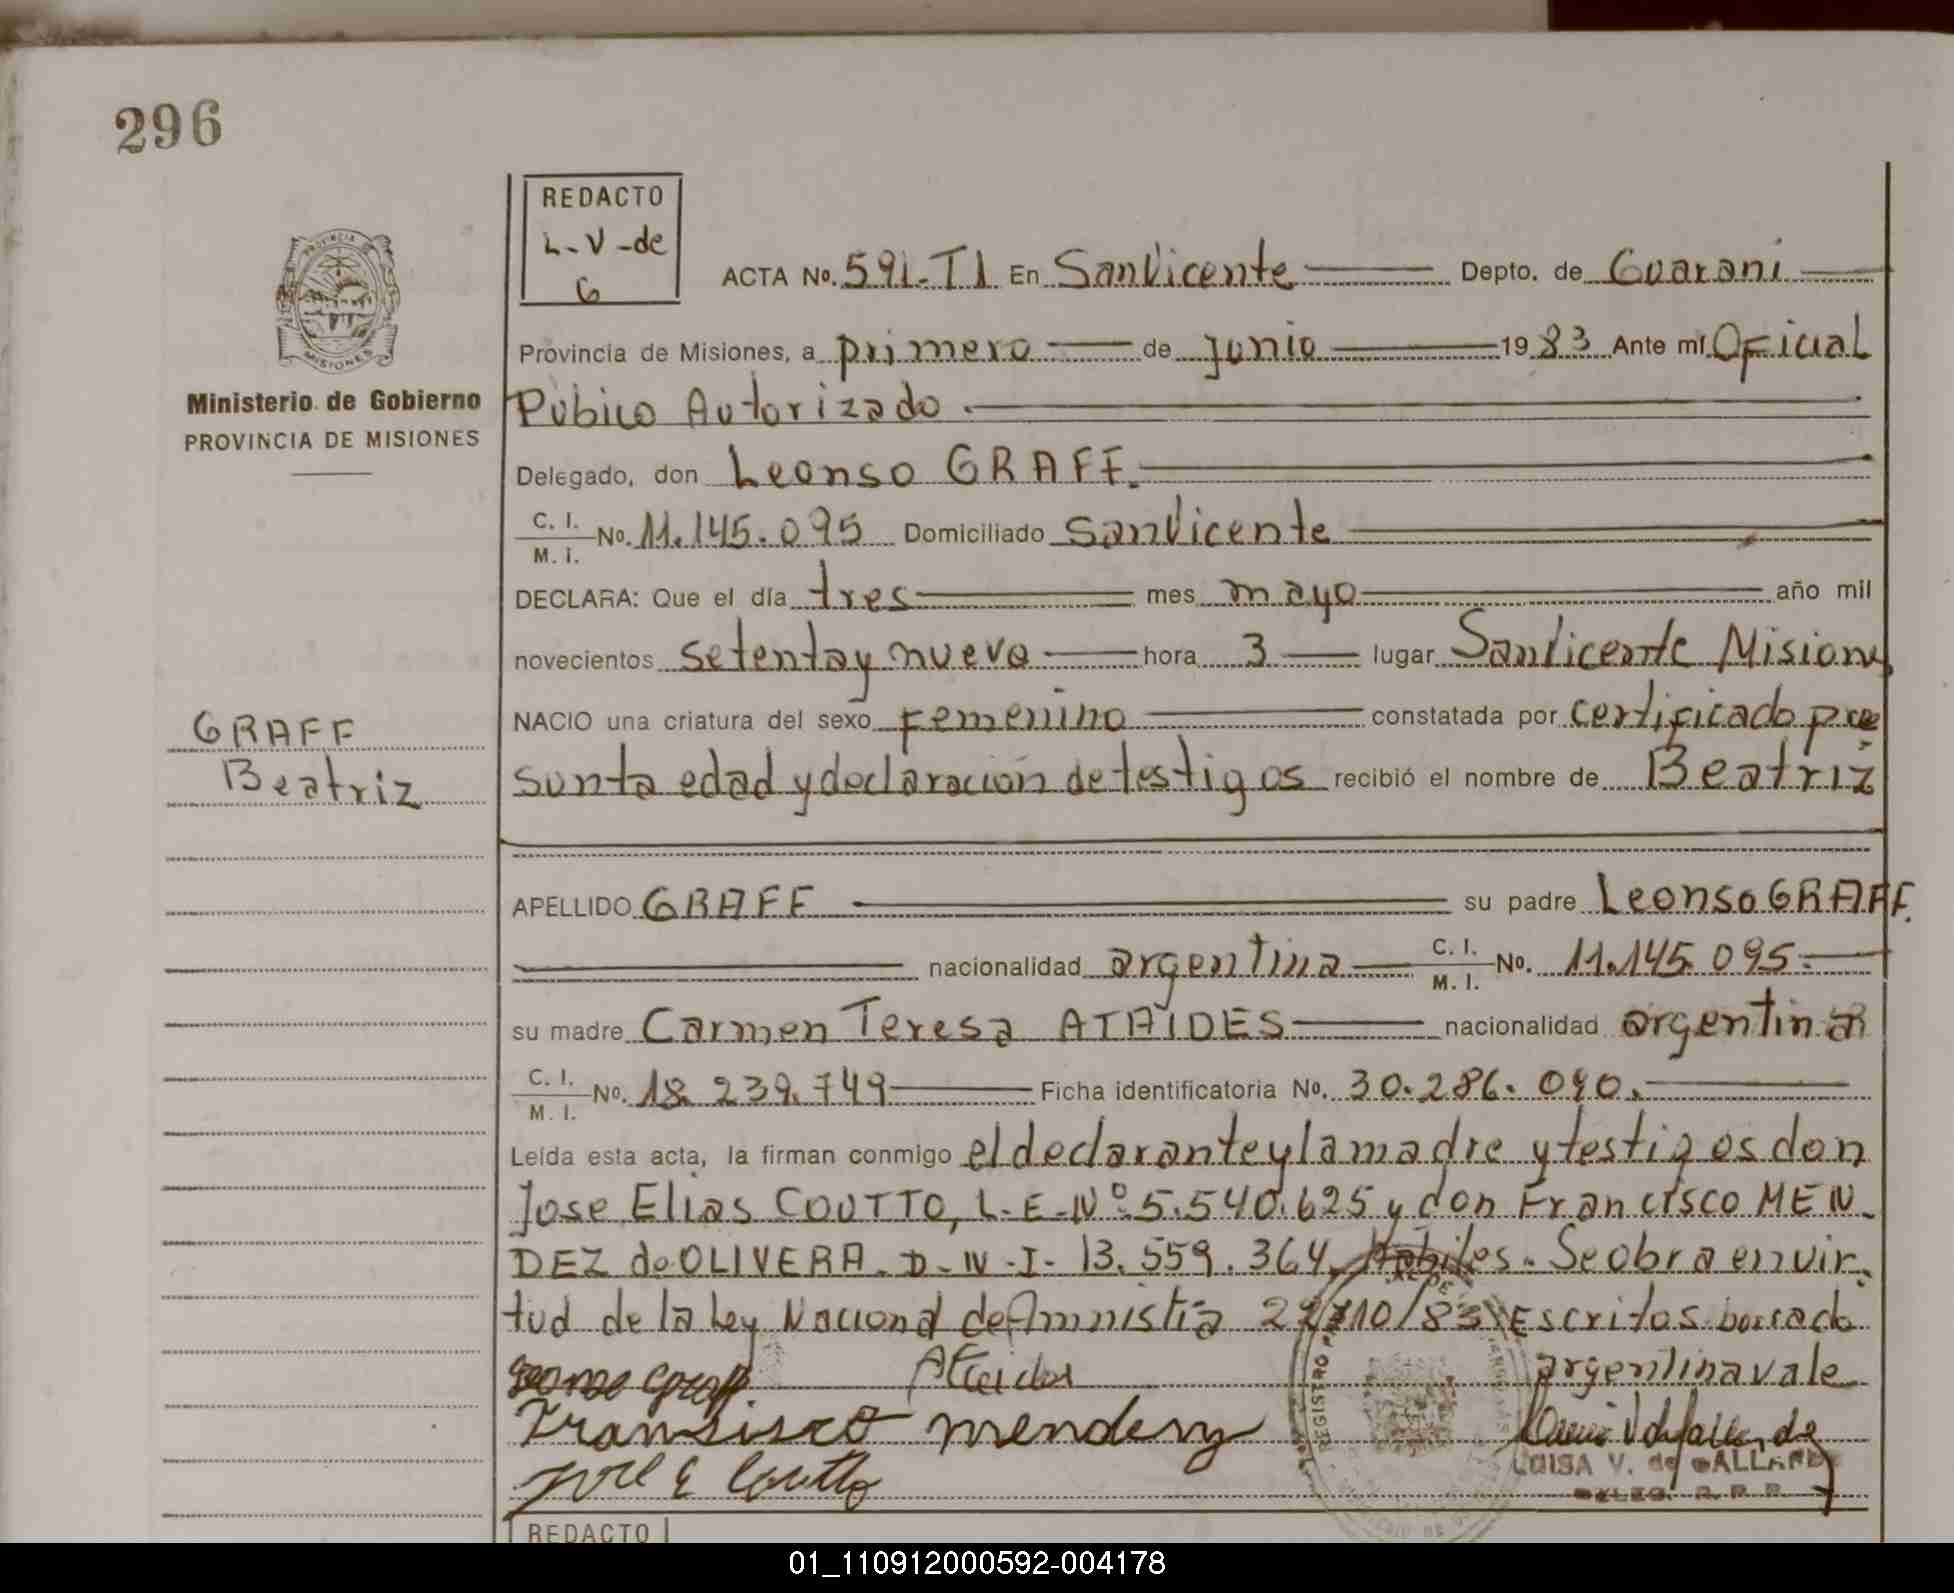 296
REDACTO
L-V-de
G
PROVINCIA DE
MISIONES
Ministerio de Gobierno
PROVINCIA DE MISIONES
ACTA No. 591-T1 En SanVicente Depto. de Guarani
Provincia de Misiones, a primero de junio 1983 Ante mí Oficial
Púbico Autorizado.
Delegado, don Leonso GRAFF.
C. I. / M. I. No. 11.145.095 Domiciliado SanVicente
DECLARA: Que el día tres mes mayo año mil
novecientos setentay nueve hora 3 lugar SanVicente Misiones
NACIO una criatura del sexo Femenino constatada por certificado pre
sunta edad y declaración de testigos recibió el nombre de Beatriz
GRAFF
Beatriz
APELLIDO GRAFF su padre Leonso GRAFF.
nacionalidad argentina C. I. / M. I. No. 11.145.095.
su madre Carmen Teresa ATAIDES nacionalidad argentina
C. I. / M. I. No. 18.239.749 Ficha identificatoria No. 30.286.090.
Leída esta acta, la firman conmigo el declarante y la madre y testigos don
Jose Elias COUTTO, L-E-Nº 5.540.625 y don Francisco MEN-
DEZ de OLIVERA. D-N-I- 13.559.364, Habiles. Se obra en vir-
tud de la Ley Nacional de Amnistía 22 /83 Escritos borrado
argentina vale
Fransisco mendez
Jose E Coutto
REGISTRO
LUISA V. de GALLARDO
DELEG. R. P. P.
REDACTO
01_110912000592-004178